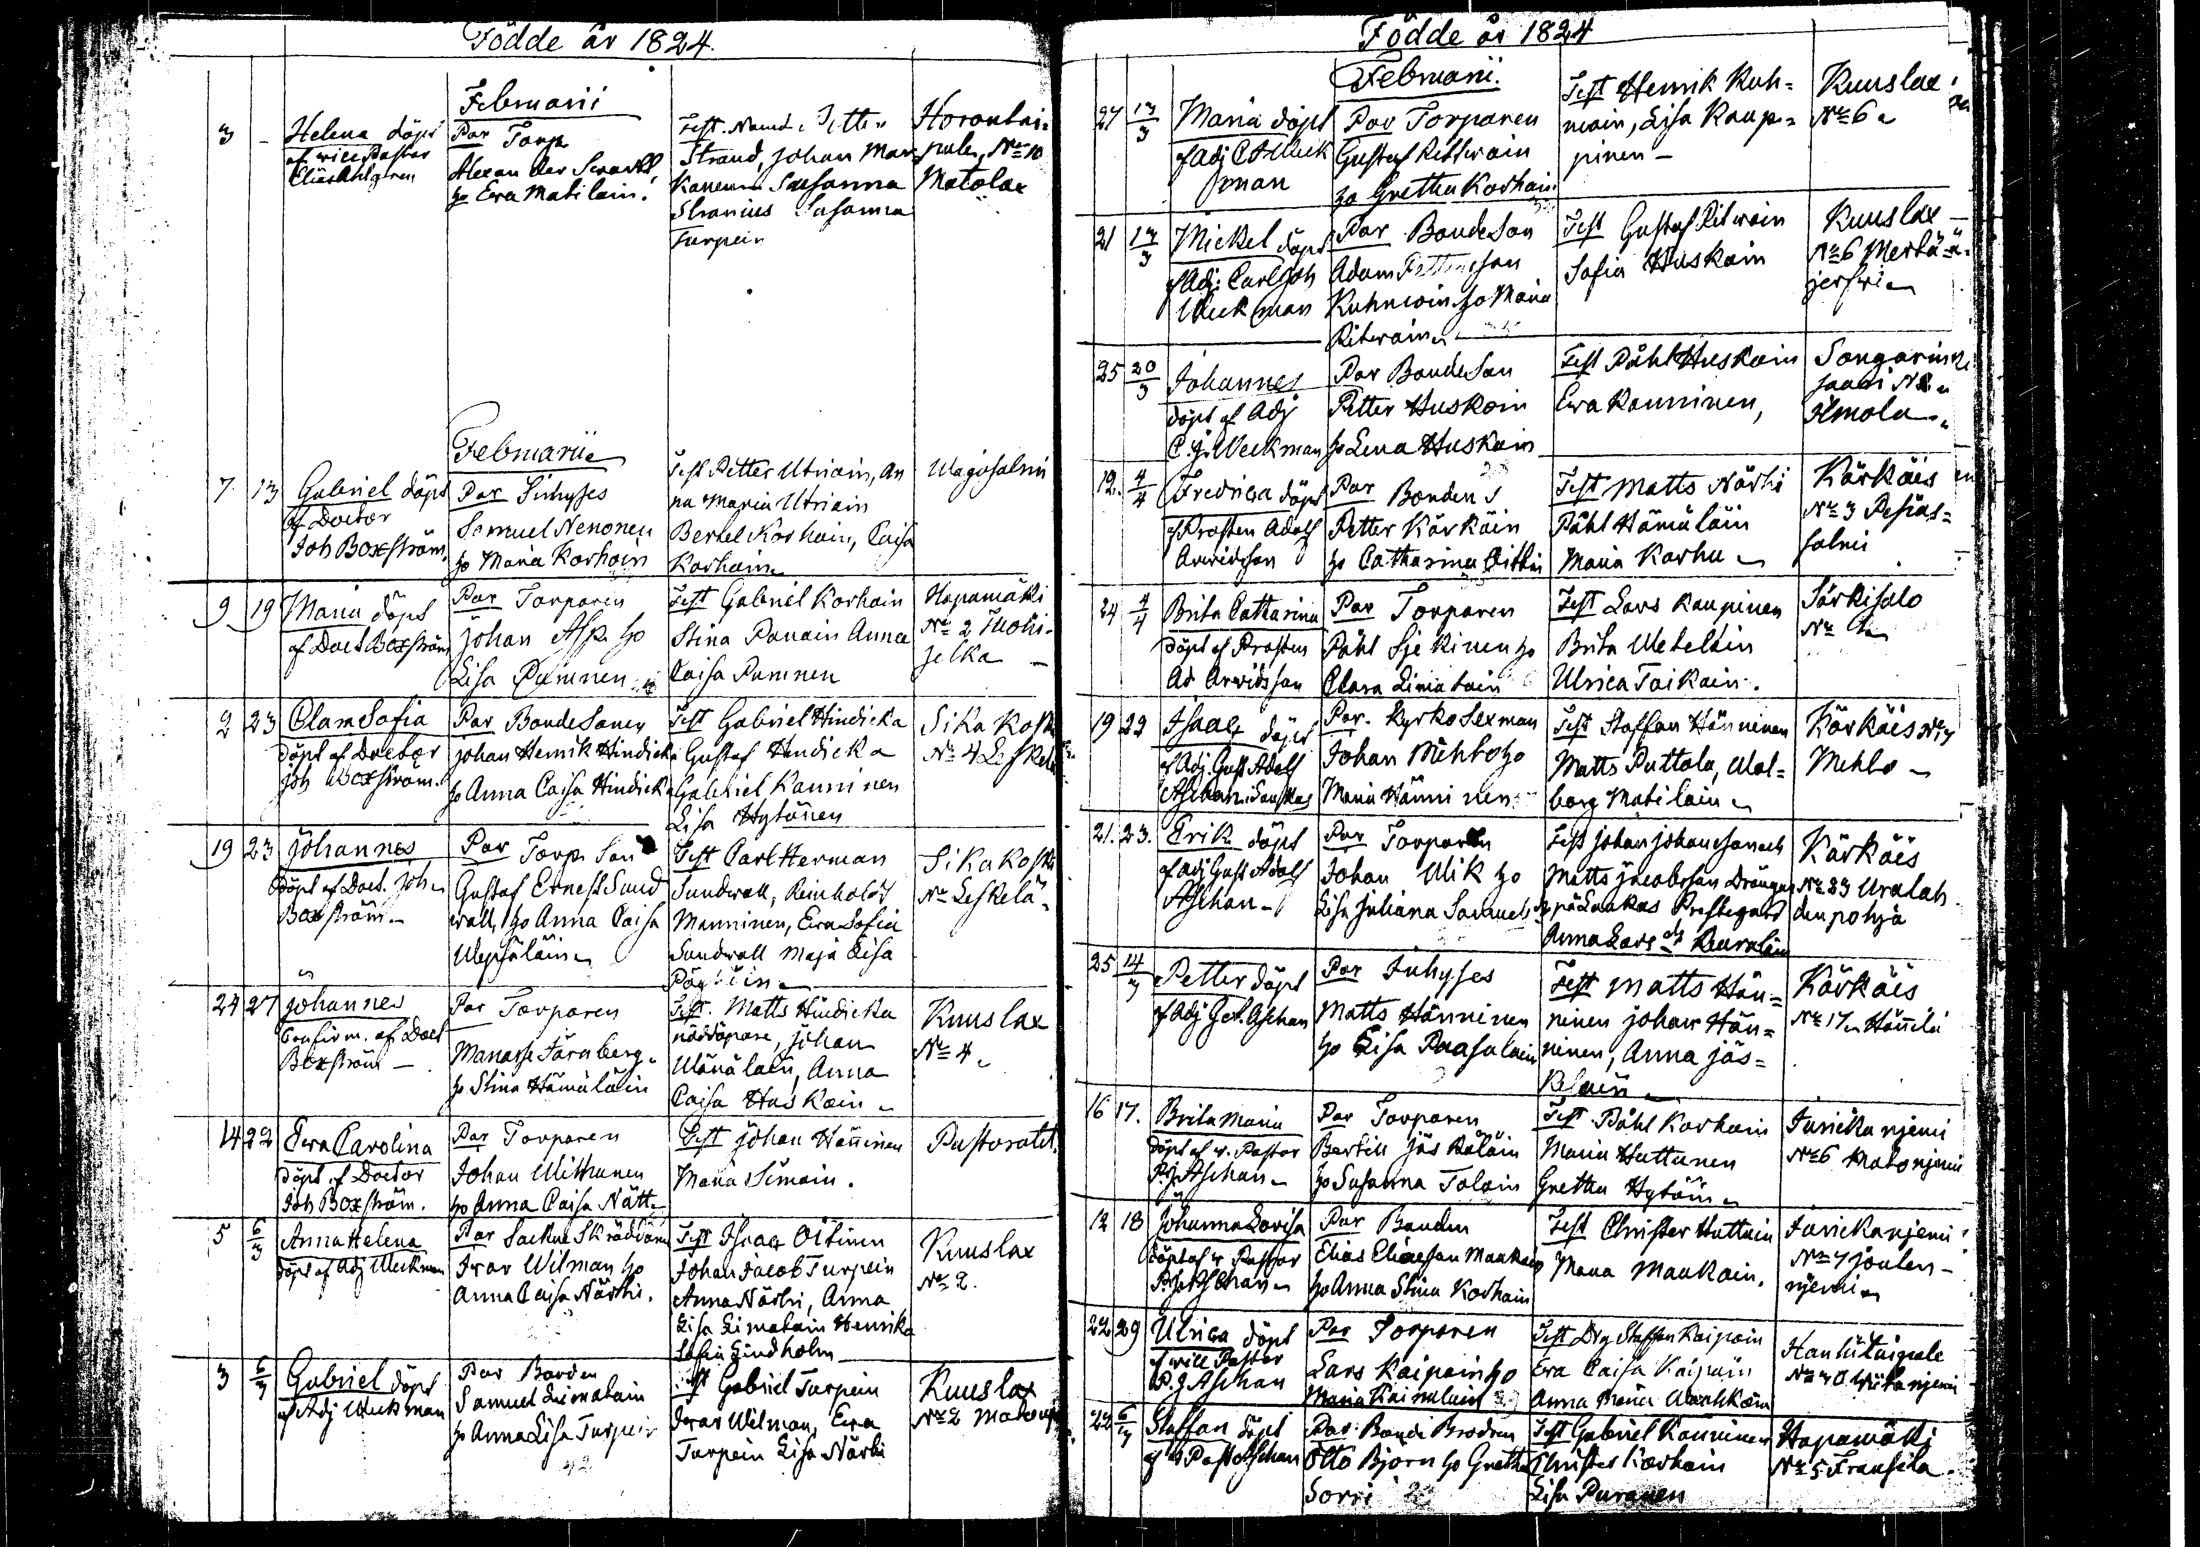 Födde år 1824.
Februarii
3 - Helena döpt
af vice Pastor
Par Torp.
Alexander
hr Eva Matilain.
Test. Nämd.
Strand, Johan Mar-
kanen Susanna
Stranius Susanna
Turpein
Horontai-
pale, No 10
Matolax
Februarii
7 13 Gabriel döpt
af Doctor
Joh Boxström
Par Inhyses
Samuel Nenonen
ho Maria Korhoin
Test Petter Utriain, An
na Maria Utriain
Bertel Korhoin, Caisa
Korhoin
Wagosalmi
9 19 Maria döpt
af Doct Boxström
Par Torparen
Johan Asp ho
Lisa Puminen
Test Gabriel Korhoin
Stina Parrain Anna
Caisa Puminen
Hapamäki
No 2 Thohi-
jelka
2 23 Clara Sofia
döpt af Doctor
Joh Boxström.
Par Bondesonen
Johan Henrik Hindicka
ho Anna Caisa Hindicka
Test Gabriel Hindicka
Gustaf Hindicka
Gabriel Kanninen
Lisa Hytönen
Sikakosk
No 4 Leskelä
19 23 Johannes
döpt af Doct. Joh.
Boxström
Par Torp. Son
Gustaf Ernest Sund
wall, ho Anna Caisa
Wepsäläin
Test Carl Herman
Sundwall, Reinhold
Manninen, Eva Sofia
Sundwall Maja Lisa
Sikakoski
No Leskelä
24 27 Johannes
Confirm. af Doct
Boxström
Par Torparen
Manasse Färnberg
ho Stina Hämäläin
Test. Matts Hindicka
nöddöpare, Johan
Wänäläin, Anna
Caisa Huskoin
Kuuslax
No 4
14 22 Ewa Carolina
döpt af Doctor
Joh Boxström.
Par Torparen
Johan Mithunen
ho Anna Caisa Nätt
Test Johan Hänninen
Maria Simoin.
Pastoratet
5 6/3 Anna Helena
döpt af Adj Weckman
Par Sockne Skräddaren
Ivar Wilman ho
Anna Caisa Närhi.
Test Isaac Oitinen
Johan Jacob Turpein
Anna Närhi, Anna
Lisa Limatain Henrika
Sofia Lindholm
Kuuslax
No 2.
3 6/3 Gabriel döpt
af Adj Weckman
Par Bonden
Samuel Limatain
ho Anna Lisa Turpein
42
Test Gabriel Turpein
Ivar Wilman, Ewa
Turpein Lisa Närhi
Kuuslax
No 2
Födde år 1824
Februarii.
27 13/3 Maria döpt
af Adj C J Weck
man
Par Torparen
Gustaf Ritwain
ho Gretha Korhain
Test Henrik Kuh-
main, Lisa Kaup-
pinen
Kuuslax
No 6
21 13/3 Mickel döpt
af Adj: Carl Joh
Weckman
Par Bondeson
Adam Pettersson
Kuhmoin ho Maria
Ritwain
Test Gustaf Ritwain
Sofia Huskoin
Kuuslax
No 6 Mertä-
jerfwi
25 20/3 Johannes
döpt af Adj
C. J. Weckman
Par Bondeson
Petter Huskoin
ho Lena Huskain
Test Påhl Huskoin
Ewa Kanninen,
Songarin
saari No
Ilmola
12. 4/4 Fredrica döpt
af Prosten Adolf
Arwidsson
Par Bonden
Petter Kärkäin
ho Catharina Oittin
Test Matts Närhi
Påhl Hämäläin
Maria Karhu
Kärkäis
No 3 Pesiäs-
salmi
24 4/4 Brita Catharina
döpt af Prosten
Ad Arwidsson
Par Torparen
Påhl Sjekinen ho
Clara Limatain
Test Lars Kaupinen
Brita Weteläin
Ulrica Taikain.
Särkisalo
No
19 22 Isaac döpt
af Adj. Gust Adolf
Aschan
Par. Kyrko Sexman
Johan Mehlo ho
Maria Hänninen
Test Staffan Hänninen
Matts Puttola, Wal-
borg Matilain
Kärkäis No 7
Mehlo
21. 23. Erik döpt
af Adj Gust Adolf
Aschan
Par Torparen
Johan Wik ho
Lisa Juliana Samuels
Test Johan Johansson och
Matts Jacobsson Drängar
på Laukas Prestegård
Anna Lars dr
Kärkäis
No 23
pohja
25 14/3 Petter döpt
af Adj G. A. Aschan
Par Inhyses
Matts Hänninen
ho Lisa Paasolain
Test Matts Hän-
ninen Johan Hän-
ninen, Anna Jäs-
keläin
Kärkäis
No 17 Hännilä
16 17. Brita Maria
döpt af v. Pastor
P. J. Aschan
Par Torparen
Bertill Jäskäläin
ho Susanna Tolain
Test Påhl Korhoin
Maria Huttunen
Gretha Hytöin
Janickanjemi
No 6 Matonjemi
12 18 Johanna Lovisa
döpt af v Pastor
P. J. Aschan
Par Bonden
Elias Eliaesson Maukain
ho Anna Stina Korhain
Test Christer Huttuin
Maria Maukain.
Janickanjemi
No 7 Joulen-
njemi
22 29 Ulrica döpt
af vice Pastor
P. J. Aschan
Par Torparen
Lars Kaipain ho
Maria Kaimulain
Test Drg Staffan Kaipain
Eva Caisa Kaipain
Anna Maria
Hankitaipale
No 40
22 Staffan döpt
af v Past Aschan
Par. Bonde Brodren
Otto Björn ho Gretha
Sorri
Test Gabriel Kanninen
Christer Korhoin
Lisa Puranen
Hapamäki
No 5 Fransila